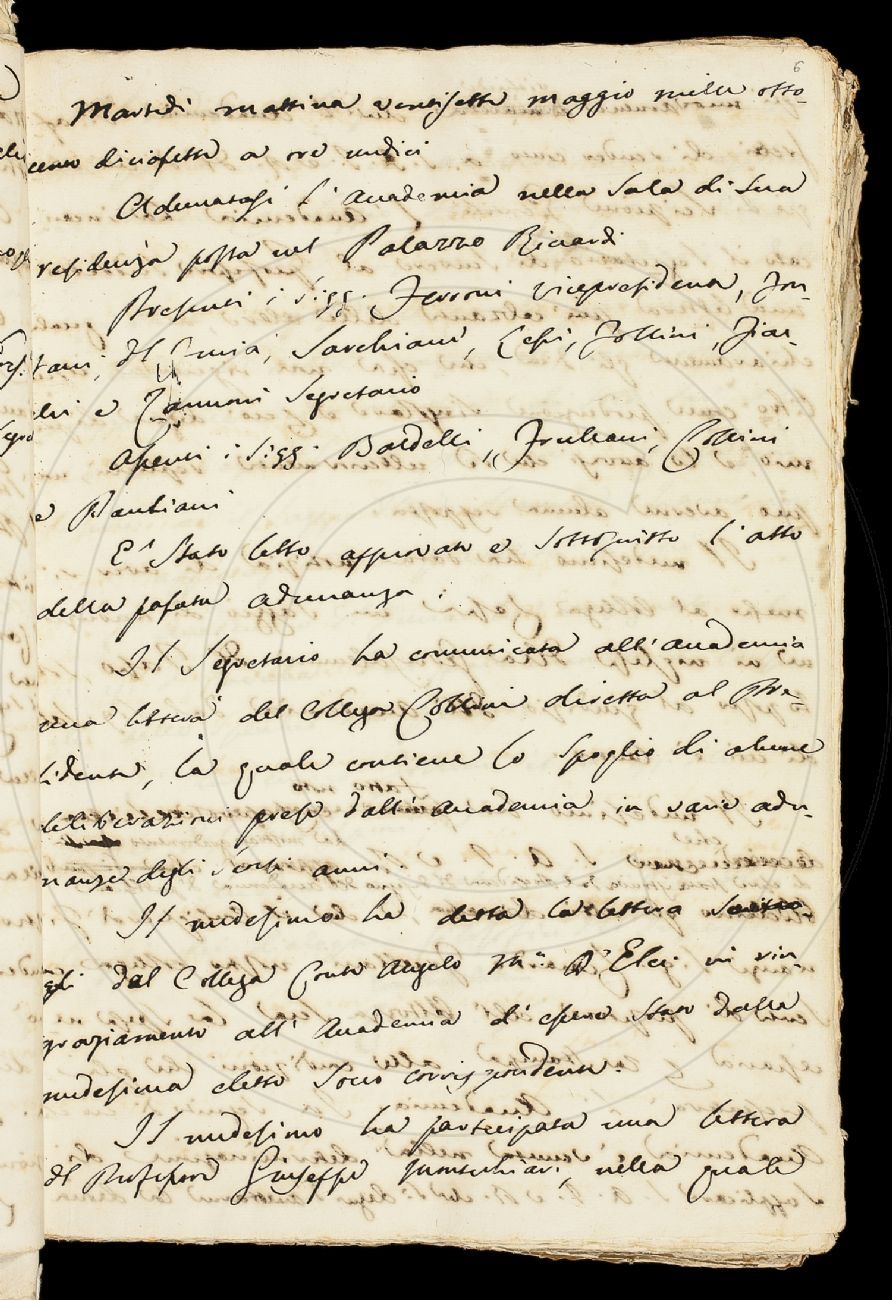 6
Martedì mattina ventisette maggio mille otto-
cento diciasette a ore undici
Adunatasi l'Accademia nella Sala di sua
residenza posta nel Palazzo Riccardi
Presenti i sigg. Ferroni vicepresidente, Fon-
tani, Del Furia, Sarchiani, Lessi, Follini, Fiac-
chi e Zannoni Segretario
Assenti i Sigg. Baldelli, Frullani, Collini
e
E' stato letto approvato e sottoscritto l'atto
della passata adunanza.
Il Segretario ha comunicata all'Accademia
una lettera del Collega Collini diretta al Pre-
sidente, la quale contiene lo spoglio di alcune
deliberazioni prese dall'Accademia in varie adu-
nanze degli scorsi anni.
Il medesimo ha detta la lettera
dal Collega Conte Angelo M.ª D'Elci in rin-
graziamento all'Accademia d'essere stato dalla
medesima eletto Socio corrispondente.
Il medesimo ha partecipata una lettera
del Professore Giuseppe nella quale